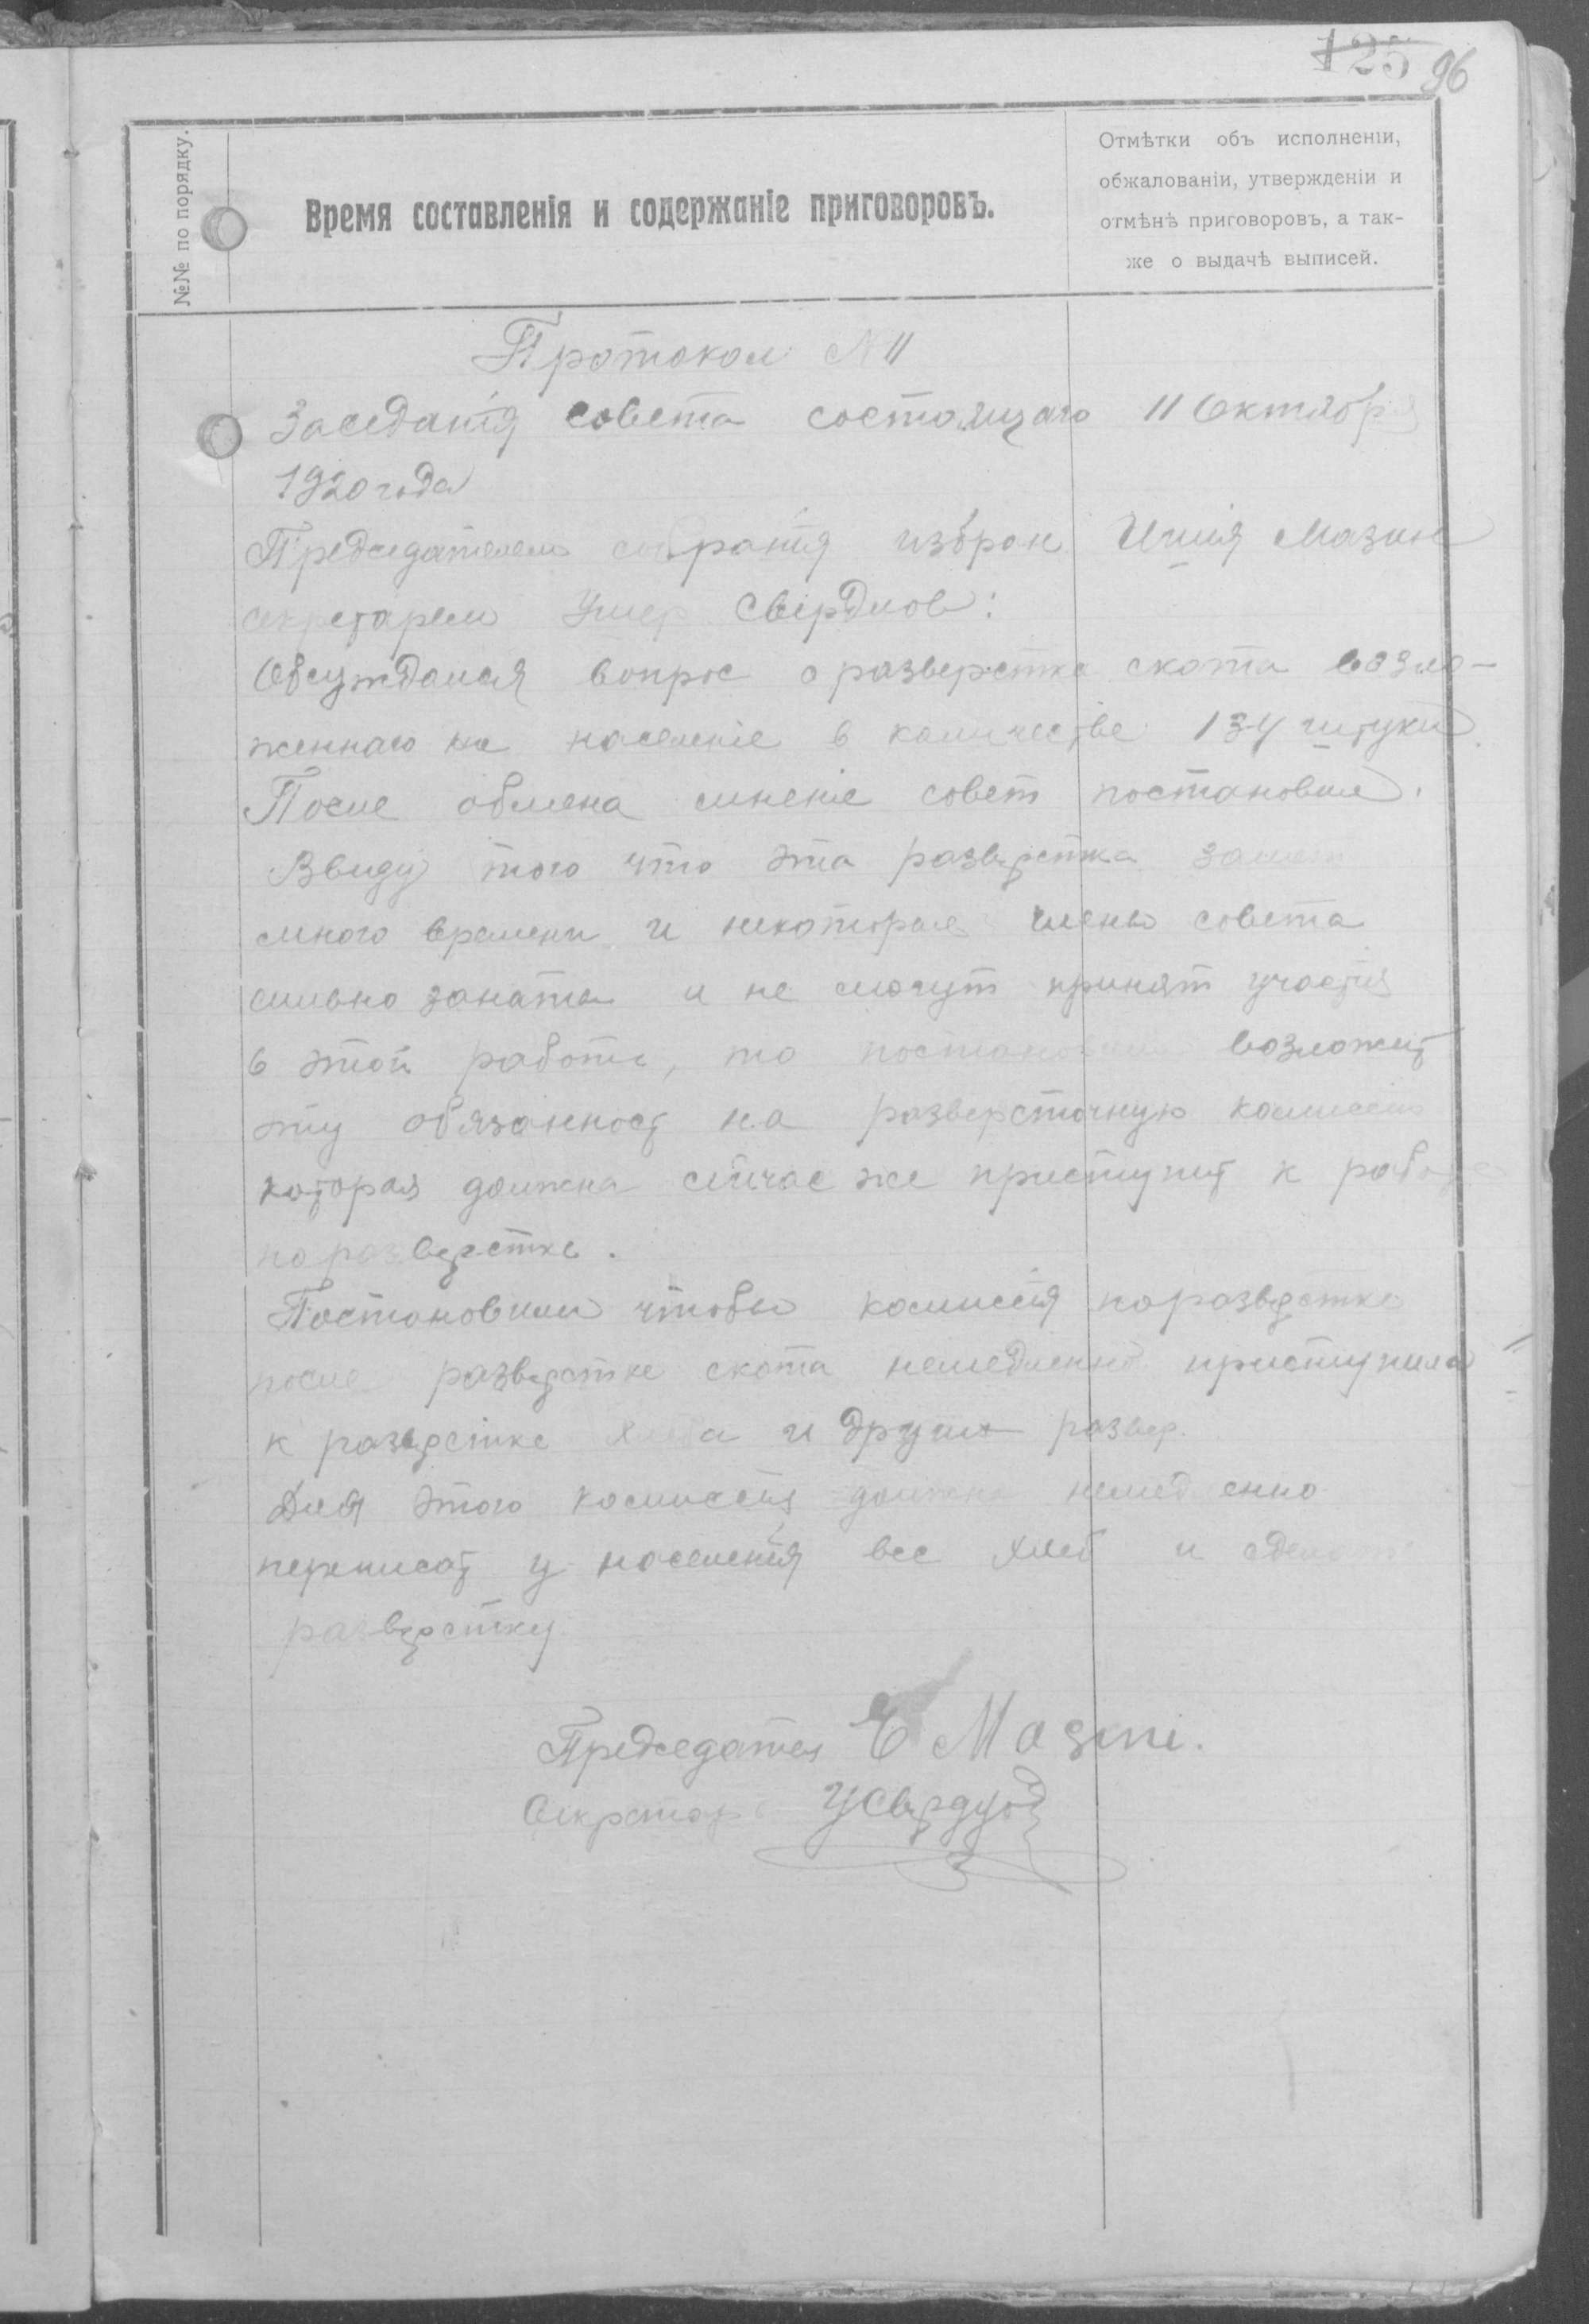 125 96
№№ по порядку.
Время составленія и содержаніе приговоровъ.
Отмѣтки объ исполненіи,
обжалованіи, утвержденіи и
отмѣнѣ приговоровъ, а так-
же о выдачѣ выписей.
Протокол N 11
Заседанія совета состоящаго 11 Октября
1920 года
Председателем собранія избран Ишія Мазин
секретарем Ушер Свердлов:
Обсуждался вопрос о разверстке скота возло-
женнаго на населеніе в количестве 134 штуки
После обмена мненіе совет постановил:
Ввиду того что эта разверстка займет
много времени и некоторые члены совета
сильно заняты и не могут принят участия
в этой работе, то постановили возложит
эту обязанност на разверсточную комиссию
которая должна сейчас же приступит к работе
по разверстке.
Постановили чтобы комиссія по разверстке
после разверстке скота немедленно приступила
к разверстке хлеба и других развер.
Для этого комиссия должна немедленно
переписат у населенія все хлеб и сделать
разверстку
Председател Е Мазин.
Секретар УСвердлов